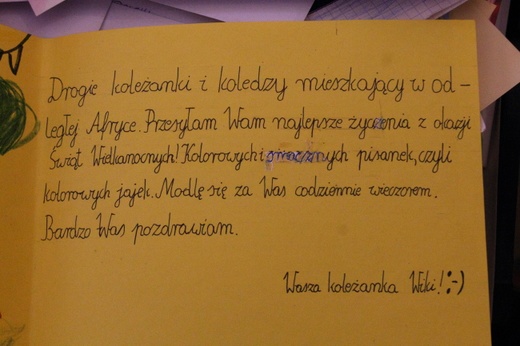 Drogie koleżanki i koledzy mieszkający w od-
ległej Afryce. Przesyłam Wam najlepsze życzenia z okazji
Świąt Wielkanocnych! Kolorowych i smacznych pisanek, czyli
kolorowych jajek. Modlę się za Was codziennie wieczorem.
Bardzo Was pozdrawiam.
Wasza koleżanka Wiki! :-)